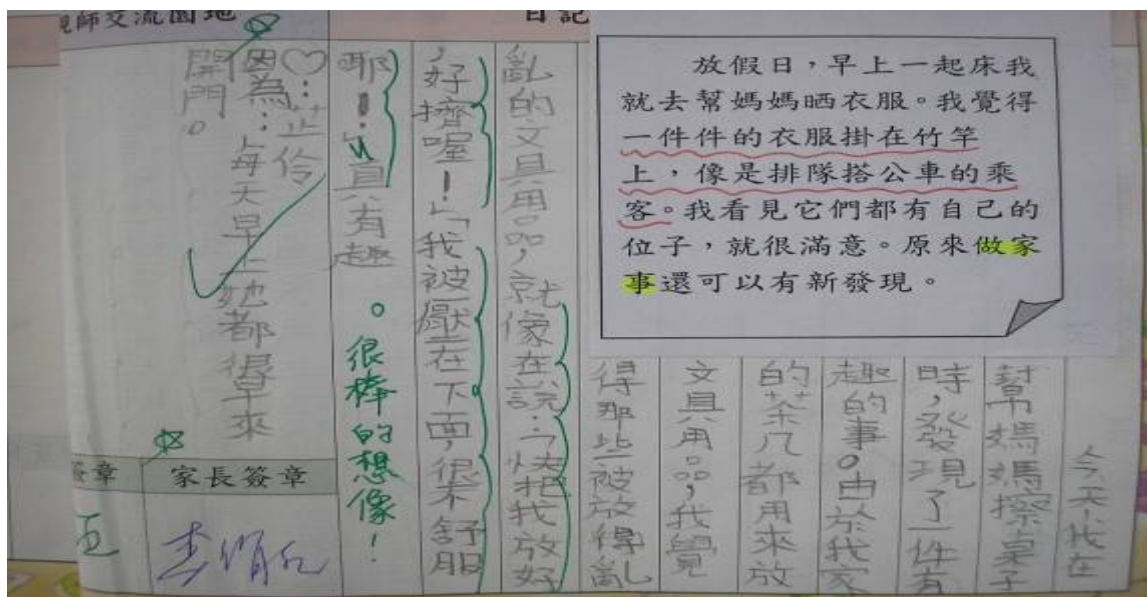 日記
放假日，早上一起床我
就去幫媽媽晒衣服。我覺得
一件件的衣服掛在竹竿
上，像是排隊搭公車的乘
客。我看見它們都有自己的
位子，就很滿意。原來做家
事還可以有新發現。
今天，我在
幫媽媽擦桌子
時，發現了一件有
趣的事。由於我家
的茶几都用來放
文具用品，我覺
得那些被放得亂
亂的文具用品，就像在說：「快把我放好
，好擠喔！」「我被壓在下面，很不舒服
耶！…」真有趣。很棒的想像！
師交流園地
♡：芷伶
因為：每天早上她都很早來
開門。
家長簽章
章